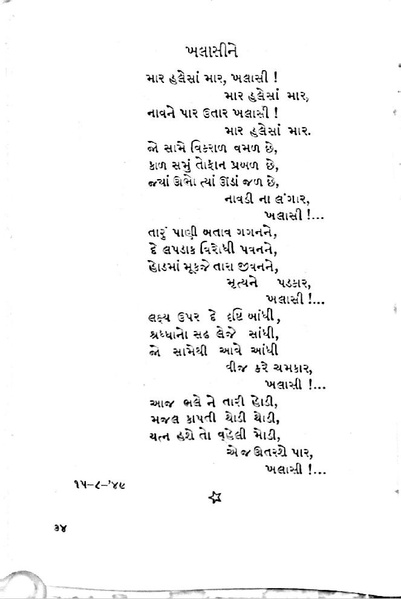 ખલાસીને
માર હલેસાં માર, ખલાસી !
માર હલેસાં માર,
નાવને પાર ઉતાર ખલાસી !
માર હલેસાં માર.
જો સામે વિકરાળ વમળ છે,
કાળ સમું તોફાન પ્રબળ છે,
જ્યાં ઊભો ત્યાં ઊંડાં જળ છે,
નાવડી ના લંગાર,
ખલાસી !...
તારું પાણી બતાવ ગગનને,
દે લપડાક વિરોધી પવનને,
હોડમાં મૂકજે તારા જીવનને,
મૃત્યને પડકાર,
ખલાસી !...
લક્ષ્ય ઉપર દે દૃષ્ટિ બાંધી,
શ્રધ્ધાનો સઢ લેજે સાંધી,
જો સામેથી આવે આંધી
વીજ કરે ચમકાર,
ખલાસી !...
આજ ભલે ને તારી હોડી,
મજલ કાપતી થોડી થોડી,
યત્ન હશે તો વહેલી મોડી,
એ જ ઊતરશે પાર,
ખલાસી !...
૧૫-૮-'૪૯
૩૪